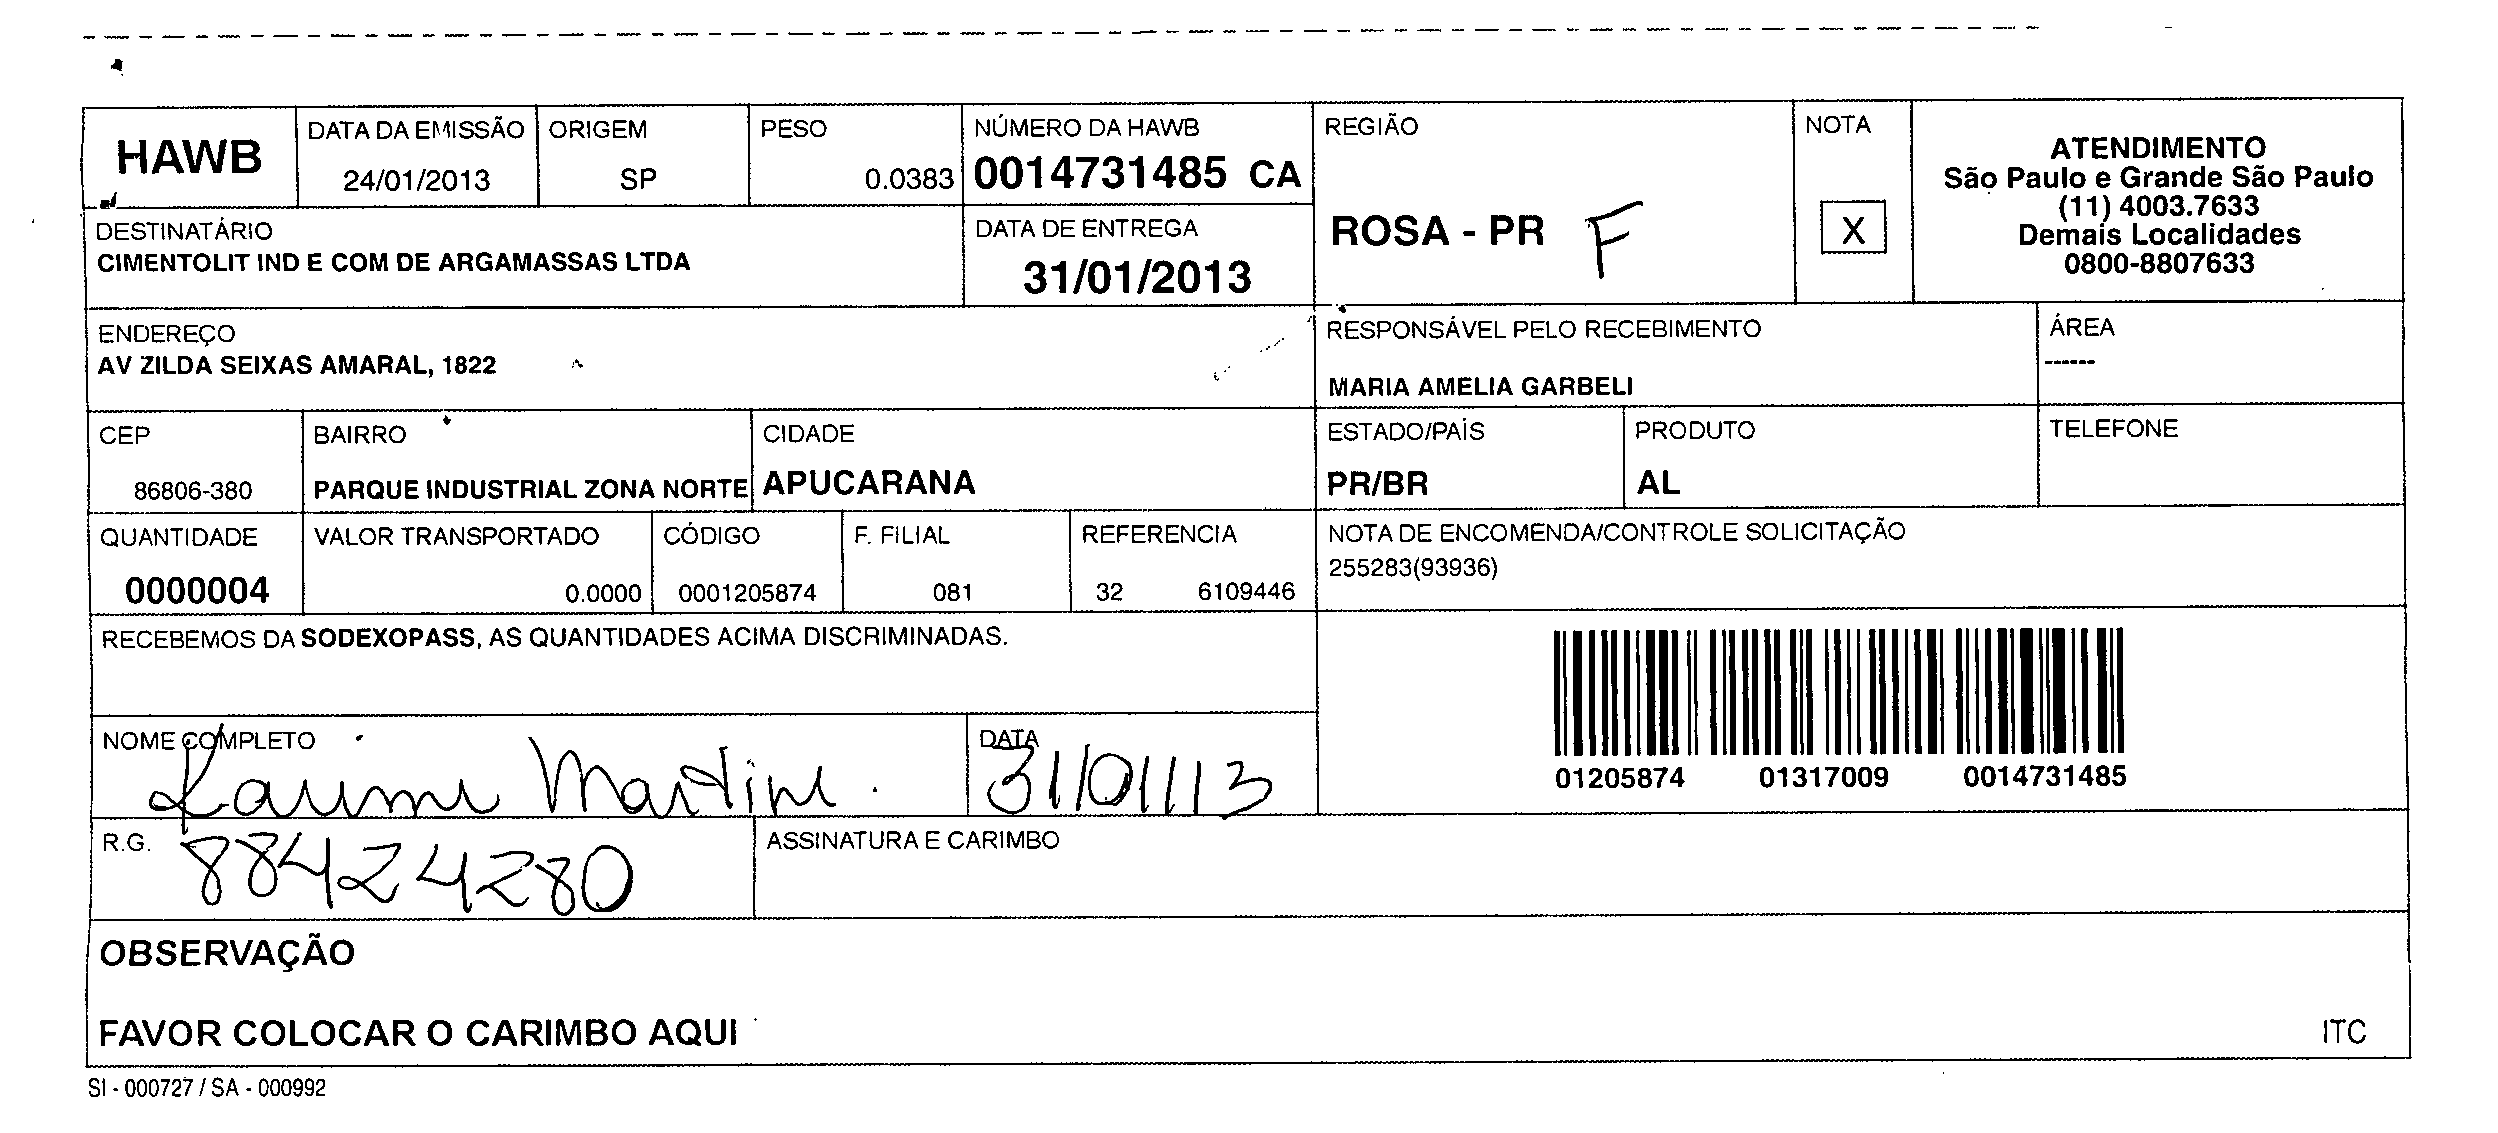 HAWB
DATA DA EMISSÃO
24/01/2013
ORIGEM
SP
PESO
0.0383
NÚMERO DA HAWB
0014731485 CA
REGIÃO
ROSA - PR F
NOTA
X
ATENDIMENTO
São Paulo e Grande São Paulo
(11) 4003.7633
Demais Localidades
0800-8807633
DESTINATÁRIO
CIMENTOLIT IND E COM DE ARGAMASSAS LTDA
DATA DE ENTREGA
31/01/2013
ENDEREÇO
AV ZILDA SEIXAS AMARAL, 1822
RESPONSÁVEL PELO RECEBIMENTO
MARIA AMELIA GARBELI
ÁREA
------
CEP
86806-380
BAIRRO
PARQUE INDUSTRIAL ZONA NORTE
CIDADE
APUCARANA
ESTADO/PAÍS
PR/BR
PRODUTO
AL
TELEFONE
QUANTIDADE
0000004
VALOR TRANSPORTADO
0.0000
CÓDIGO
0001205874
F. FILIAL
081
REFERENCIA
32 6109446
NOTA DE ENCOMENDA/CONTROLE SOLICITAÇÃO
255283(93936)
RECEBEMOS DA SODEXOPASS, AS QUANTIDADES ACIMA DISCRIMINADAS.
01205874 01317009 0014731485
NOME COMPLETO
DATA
31/01/13
R.G.
88424280
ASSINATURA E CARIMBO
OBSERVAÇÃO
FAVOR COLOCAR O CARIMBO AQUI
ITC
SI - 000727 / SA - 000992